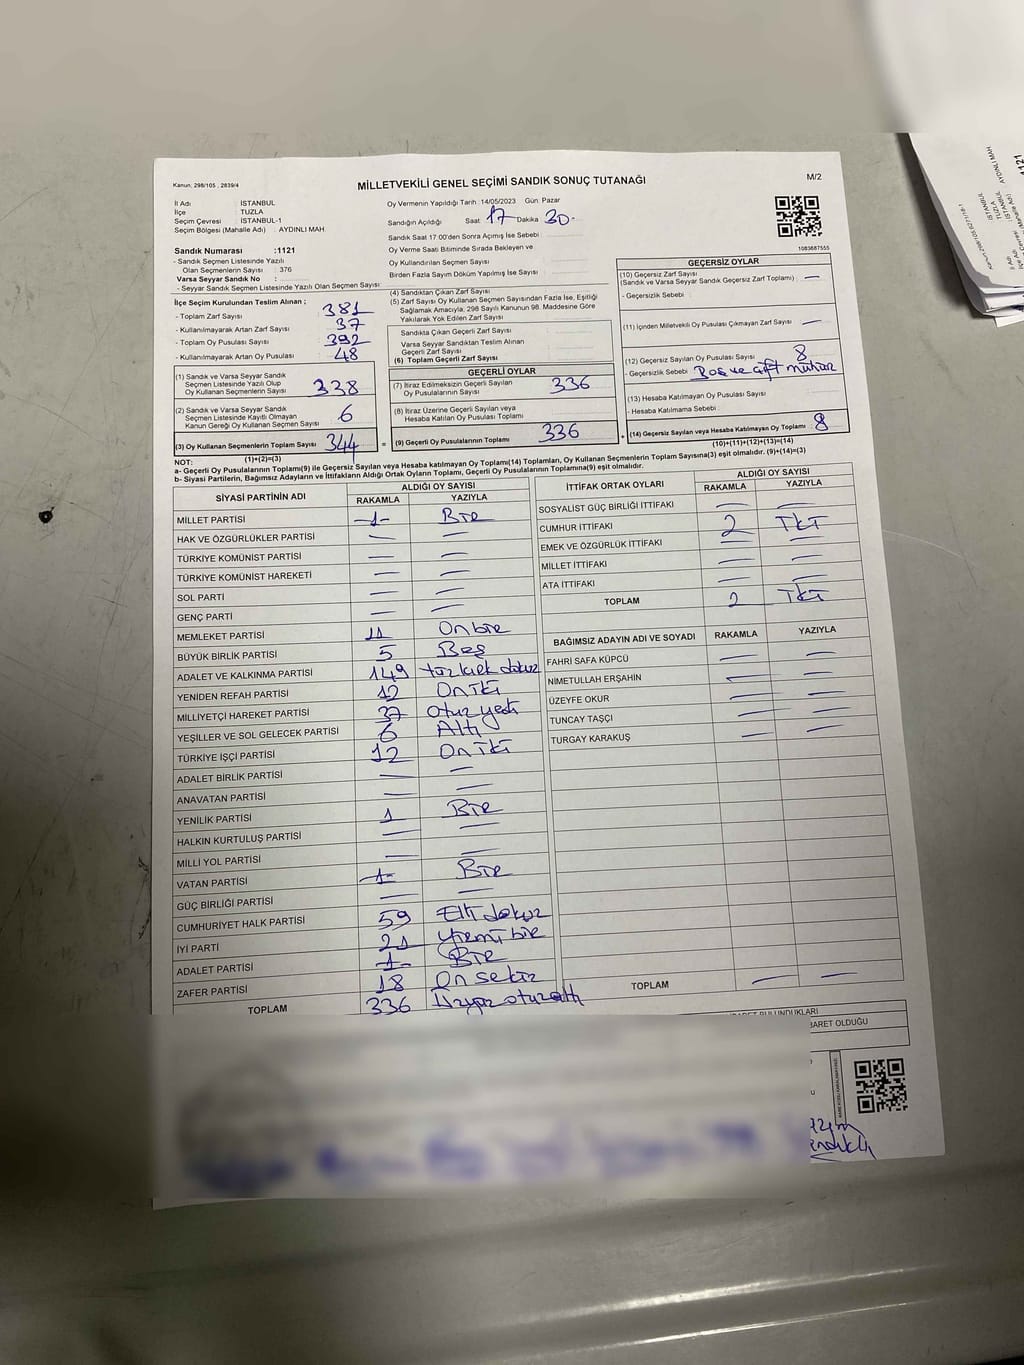 Kanun: 298/105 , 2839/4
MİLLETVEKİLİ GENEL SEÇİMİ SANDIK SONUÇ TUTANAĞI
M/2
İl Adı : İSTANBUL
İlçe : TUZLA
Seçim Çevresi : İSTANBUL-1
Seçim Bölgesi (Mahalle Adı) : AYDINLI MAH.
Oy Vermenin Yapıldığı Tarih : 14/05/2023 Gün: Pazar
Sandığın Açıldığı Saat 17 Dakika 30
Sandık Saat 17:00'den Sonra Açımış İse Sebebi :
Oy Verme Saati Bitiminde Sırada Bekleyen ve
Oy Kullandırılan Seçmen Sayısı :
Birden Fazla Sayım Döküm Yapılmış İse Sayısı :
1083687555
Sandık Numarası :1121
- Sandık Seçmen Listesinde Yazılı
Olan Seçmenlerin Sayısı : 376
Varsa Seyyar Sandık No :
- Seyyar Sandık Seçmen Listesinde Yazılı Olan Seçmen Sayısı:
İlçe Seçim Kurulundan Teslim Alınan ;
- Toplam Zarf Sayısı : 381
- Kullanılmayarak Artan Zarf Sayısı : 37
- Toplam Oy Pusulası Sayısı : 392
- Kullanılmayarak Artan Oy Pusulası : 48
(1) Sandık ve Varsa Seyyar Sandık
Seçmen Listesinde Yazılı Olup
Oy Kullanan Seçmenlerin Sayısı : 338
(2) Sandık ve Varsa Seyyar Sandık
Seçmen Listesinde Kayıtlı Olmayan
Kanun Gereği Oy Kullanan Seçmen Sayısı : 6
(3) Oy Kullanan Seçmenlerin Toplam Sayısı : 344
(1)+(2)=(3)
(4) Sandıktan Çıkan Zarf Sayısı :
(5) Zarf Sayısı Oy Kullanan Seçmen Sayısından Fazla İse, Eşitliği
Sağlamak Amacıyla, 298 Sayılı Kanunun 98. Maddesine Göre
Yakılarak Yok Edilen Zarf Sayısı :
Sandıkta Çıkan Geçerli Zarf Sayısı :
Varsa Seyyar Sandıktan Teslim Alınan
Geçerli Zarf Sayısı :
(6) Toplam Geçerli Zarf Sayısı :
GEÇERLİ OYLAR
(7) İtiraz Edilmeksizin Geçerli Sayılan
Oy Pusulalarının Sayısı : 336
(8) İtiraz Üzerine Geçerli Sayılan veya
Hesaba Katılan Oy Pusulası Toplamı :
= (9) Geçerli Oy Pusulalarının Toplamı : 336
GEÇERSİZ OYLAR
(10) Geçersiz Zarf Sayısı
(Sandık ve Varsa Seyyar Sandık Geçersiz Zarf Toplamı) : —
- Geçersizlik Sebebi :
(11) İçinden Milletvekili Oy Pusulası Çıkmayan Zarf Sayısı : —
(12) Geçersiz Sayılan Oy Pusulası Sayısı : 8
- Geçersizlik Sebebi : Boş ve çift mühür
(13) Hesaba Katılmayan Oy Pusulası Sayısı :
- Hesaba Katılmama Sebebi :
+ (14) Geçersiz Sayılan veya Hesaba Katılmayan Oy Toplamı : 8
(10)+(11)+(12)+(13)=(14)
NOT:
a- Geçerli Oy Pusulalarının Toplamı(9) ile Geçersiz Sayılan veya Hesaba katılmayan Oy Toplamı(14) Toplamları, Oy Kullanan Seçmenlerin Toplam Sayısına(3) eşit olmalıdır. (9)+(14)=(3)
b- Siyasi Partilerin, Bağımsız Adayların ve İttifakların Aldığı Ortak Oyların Toplamı, Geçerli Oy Pusulalarının Toplamına(9) eşit olmalıdır.
SİYASİ PARTİNİN ADI ALDIĞI OY SAYISI
RAKAMLA YAZIYLA
MİLLET PARTİSİ -1- Bir
HAK VE ÖZGÜRLÜKLER PARTİSİ — —
TÜRKİYE KOMÜNİST PARTİSİ — —
TÜRKİYE KOMÜNİST HAREKETİ — —
SOL PARTİ — —
GENÇ PARTİ — —
MEMLEKET PARTİSİ 11 Onbir
BÜYÜK BİRLİK PARTİSİ 5 Beş
ADALET VE KALKINMA PARTİSİ 149 Yüzkırk dokuz
YENİDEN REFAH PARTİSİ 12 Oniki
MİLLİYETÇİ HAREKET PARTİSİ 37 Otuz yedi
YEŞİLLER VE SOL GELECEK PARTİSİ 6 Altı
TÜRKİYE İŞÇİ PARTİSİ 12 On iki
ADALET BİRLİK PARTİSİ — —
ANAVATAN PARTİSİ — —
YENİLİK PARTİSİ 1 Bir
HALKIN KURTULUŞ PARTİSİ — —
MİLLİ YOL PARTİSİ — —
VATAN PARTİSİ -1- Bir
GÜÇ BİRLİĞİ PARTİSİ — —
CUMHURİYET HALK PARTİSİ 59 Elli dokuz
İYİ PARTİ 21 Yirmi bir
ADALET PARTİSİ -1- Bir
ZAFER PARTİSİ 18 On sekiz
TOPLAM 336 Üçyüz otuzaltı
İTTİFAK ORTAK OYLARI ALDIĞI OY SAYISI
RAKAMLA YAZIYLA
SOSYALİST GÜÇ BİRLİĞİ İTTİFAKI — —
CUMHUR İTTİFAKI 2 İki
EMEK VE ÖZGÜRLÜK İTTİFAKI — —
MİLLET İTTİFAKI — —
ATA İTTİFAKI — —
TOPLAM 2 İki
BAĞIMSIZ ADAYIN ADI VE SOYADI RAKAMLA YAZIYLA
FAHRİ SAFA KÜPCÜ — —
NİMETULLAH ERŞAHİN — —
ÜZEYFE OKUR — —
TUNCAY TAŞÇI — —
TURGAY KARAKUŞ — —
TOPLAM — —
BULUNDUKLARI
BARET OLDUĞU
AYDINLI MAH
TUZLA
İSTANBUL
1121